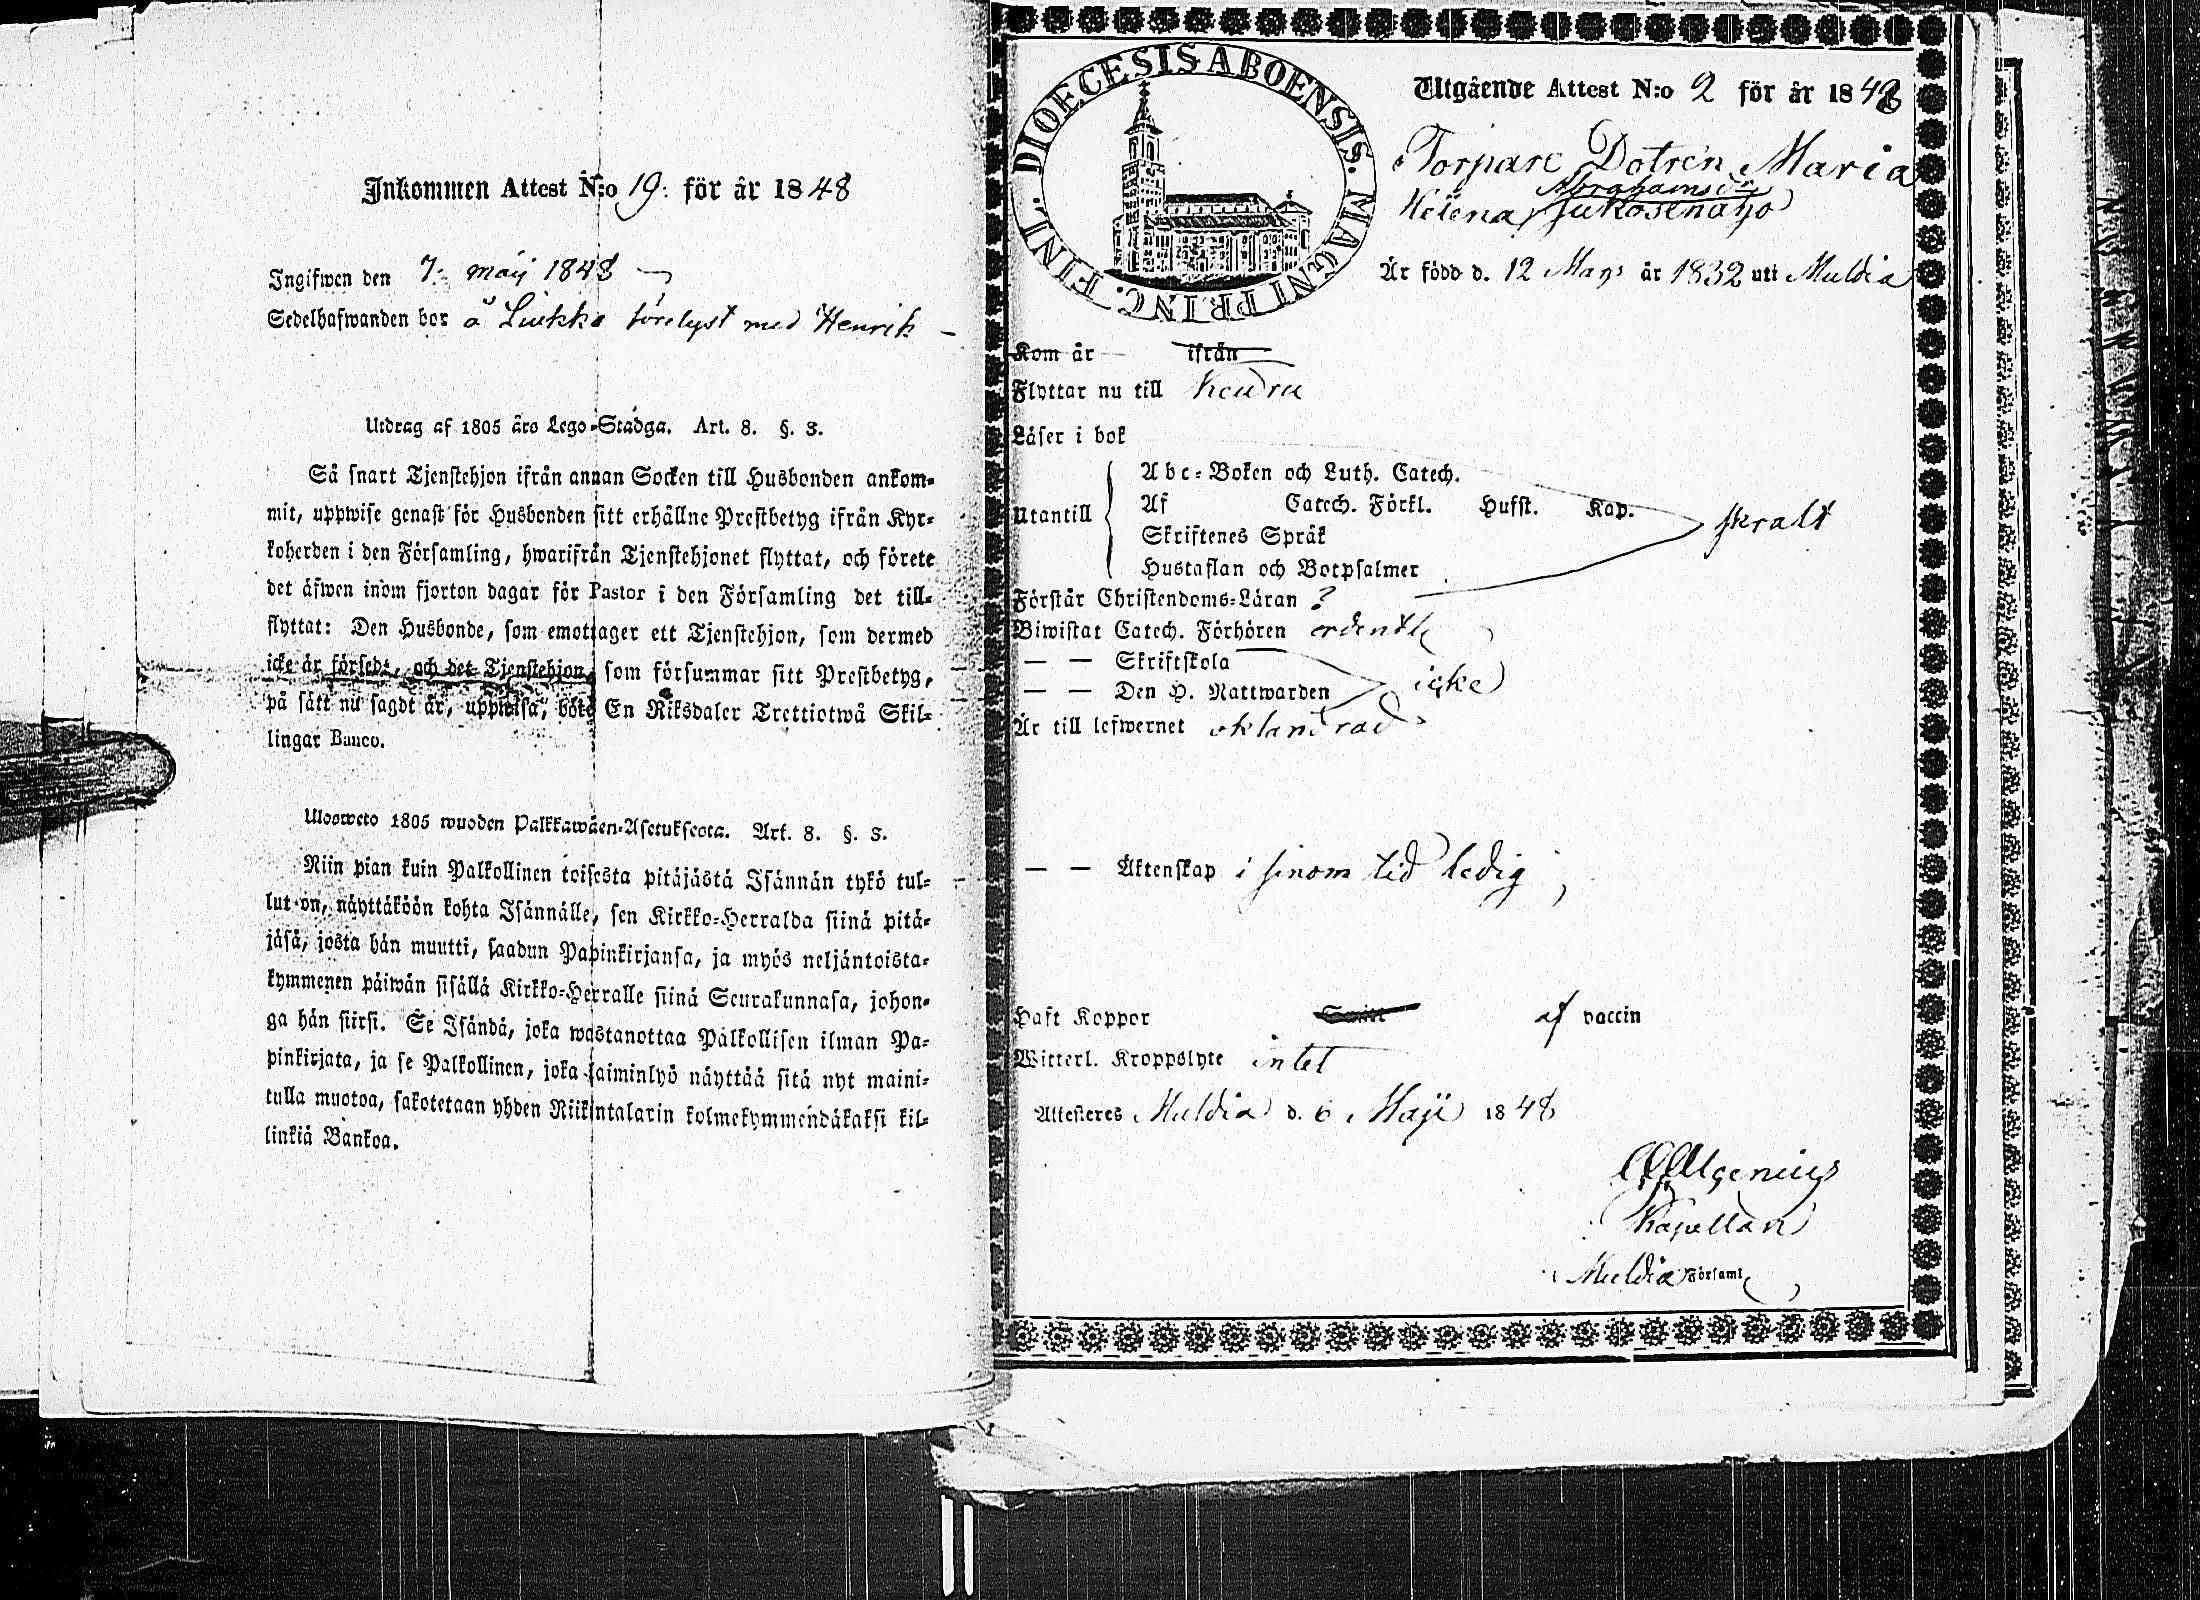 Inkommen Attest N:o 19: för år 1848
Ingifwen den 7. maij 1848
Sedelhafwanden bor å Liukko förelyst med Henrik
Utdrag af 1805 års Lego-Stadga. Art. 8. §. 3.
Så snart Tjenstehjon ifrån annan Socken till Husbonden ankom-
mit, uppwise genast för Husbonden sitt erhållne Prestbetyg ifrån Kyr-
koherden i den Församling, hwarifrån Tjenstehjonet flyttat, och förete
det äfwen inom fjorton dagar för Pastor i den Församling det till-
flyttat: Den Husbonde, som emottager ett Tjenstehjon, som dermed
icke är försedt, och det Tjenstehjon, som försummar sitt Prestbetyg,
på sätt nu sagdt är, uppwisa, böte En Riksdaler Trettiotwå Skil-
lingar Banco.
Ulosweto 1805 wuoden Palkkawäen-Asetuksesta. Art. 8. §. 3.
Niin pian kuin Palkollinen toisesta pitäjästä Isännän tykö tul-
lut on, näyttäköön kohta Isännälle, sen Kirkko-Herralda siinä pitä-
jäsä, josta hän muutti, saadun Papinkirjansa, ja myös neljäntoista-
kymmenen päiwän sisällä Kirkko-Herralle siinä Seurakunnasa, johon-
ga hän siirsi. Se Isändä, joka wastanottaa Palkollisen ilman Pa-
pinkirjata, ja se Palkollinen, joka laiminlyö näyttää sitä nyt maini-
tulla muotoa, sakotetaan yhden Riikintalarin kolmekymmendäkaksi kil-
linkiä Bankoa.
DIOECESIS ABOENSIS. MAGNI PRINC. FINL.
Utgående Attest N:o 2 för år 1848
Torpare Dotren Maria
Abrahamsdr
Helena Jukosenaho
Är född d. 12 Mars år 1832 uti Muldia
Kom år ifrån
Flyttar nu till Keuru
Läser i bok
Utantill
Abc-Boken och Luth. Catech.
Af Catech. Förkl. Hufst. Kap.
Skriftenes Språk
Hustaflan och Botpsalmer
skralt
Förstår Christendoms-Läran ?
Biwistat Catech. Förhören ordentl
— — Skriftskola
— — Den H. Nattwarden
icke
Är till lefwernet oklandrad
— — Äktenskap i sinom tid ledig
Haft Koppor af vaccin
Witterl. Kroppslyte intet
Attesteres Muldia d. 6 Maji 1848
Kapellan
Muldia Församl